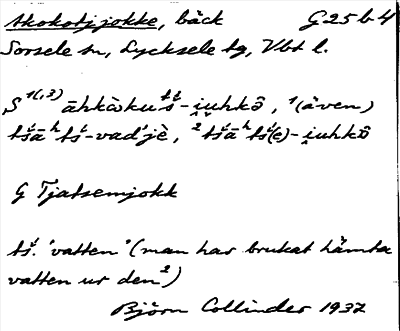 Akokotjjokke, bäck G 25 b 4
Sorsele sn, Lycksele tg, Vbt l.
S 1(,3) āhkàkuťś-i̯uhkô, 1(även)
tśāhtś-vad'jè, 2tśāhtś(e)-i̯uhkô
G Tjatsemjokk
tś. 'vatten' (man har brukat hämta
vatten ur den2)
Björn Collinder 1937